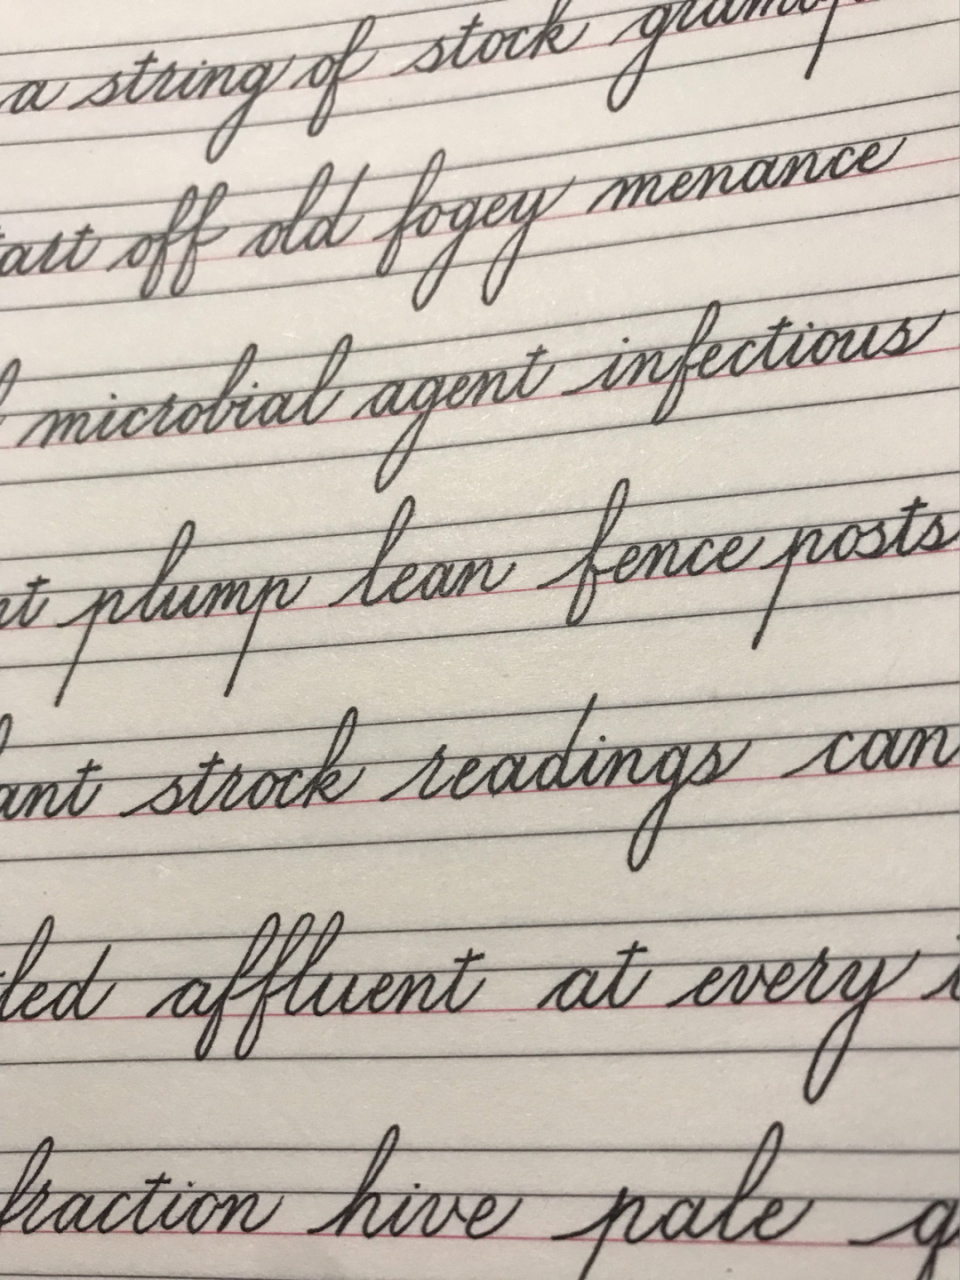 a string of stock
off old fogey menance
microbial agent infectious
plump lean fence posts
strock readings can
affluent at every
hive pale